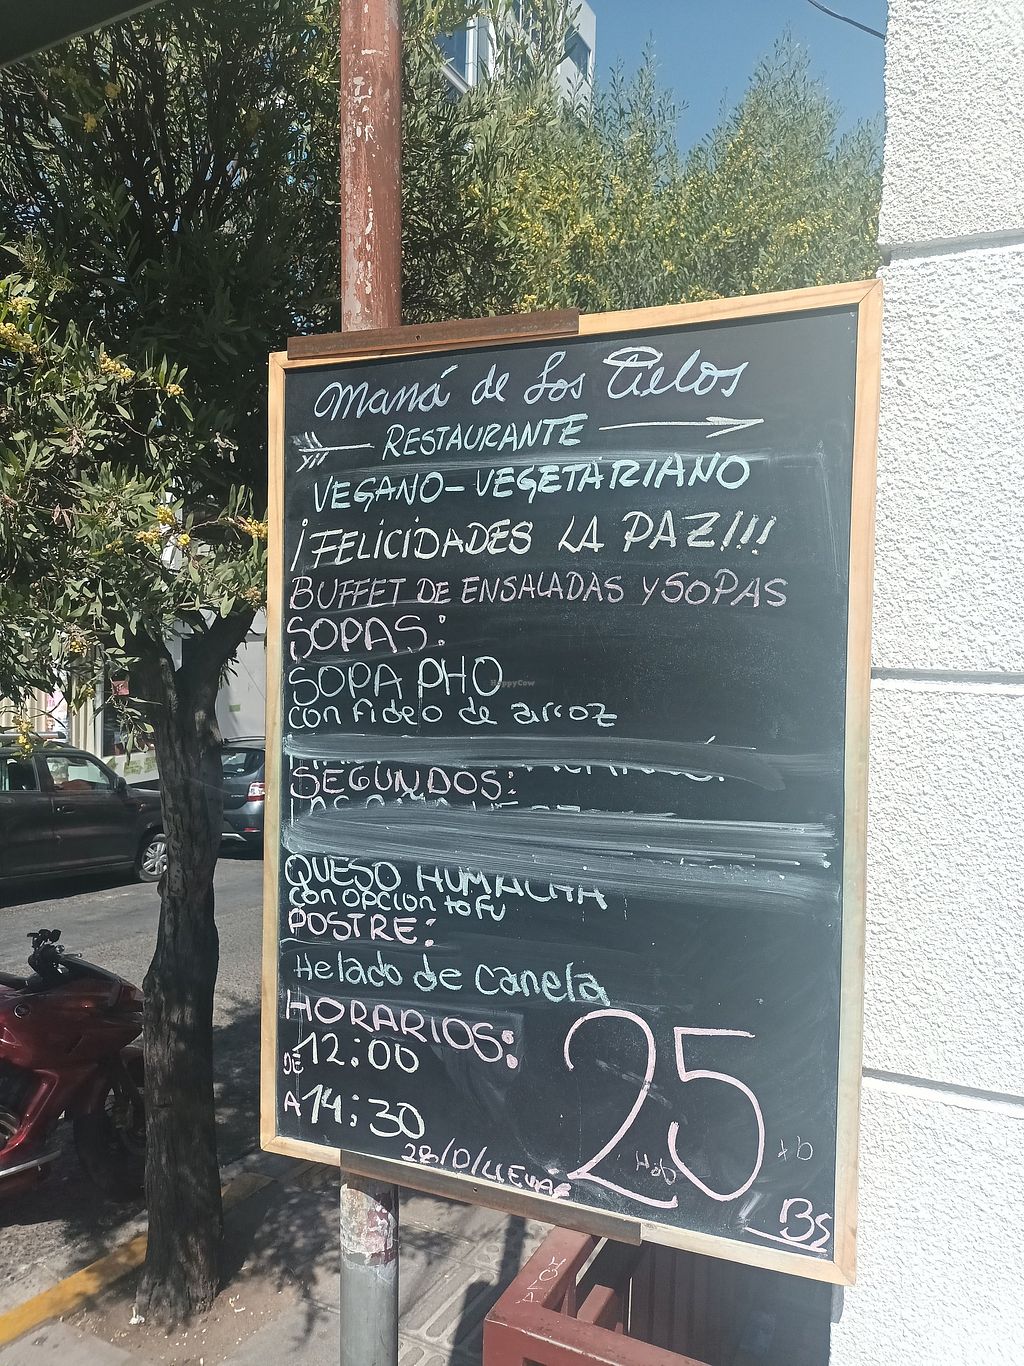 Maná de Los Cielos
RESTAURANTE
VEGANO-VEGETARIANO
¡FELICIDADES LA PAZ!!!
BUFFET DE ENSALADAS Y SOPAS
SOPAS:
SOPA PHO
HappyCow
con fideo de arroz
SEGUNDOS:
QUESO HUMACHA
con opcion tofu
POSTRE:
Helado de canela
HORARIOS:
DE 12:00
A 14:30
25
Bs